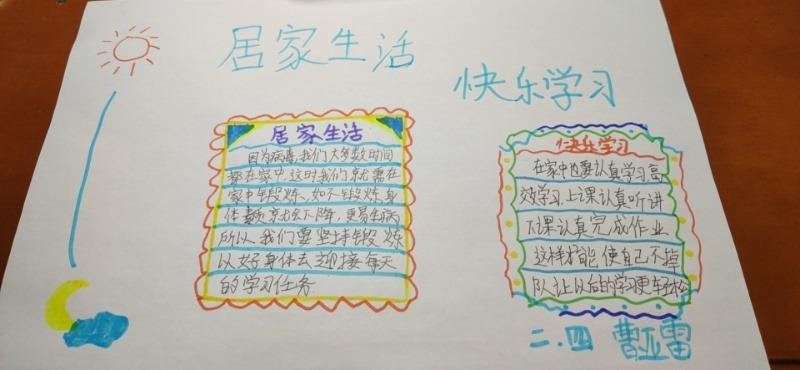 居家生活
快乐学习
居家生活
因为病毒,我们大多数时间
都在家中,这时我们就需在
家中锻炼,如不锻炼,身
体素质就会下降,更易生病
所以,我们要坚持锻炼
以好身体去迎接每天
的学习任务
快乐学习
在家中也要认真学习高
效学习,上课认真听讲
下课认真完成作业
这样才能使自己不掉
队让以后的学习更轻松
二.四 曹亚雷